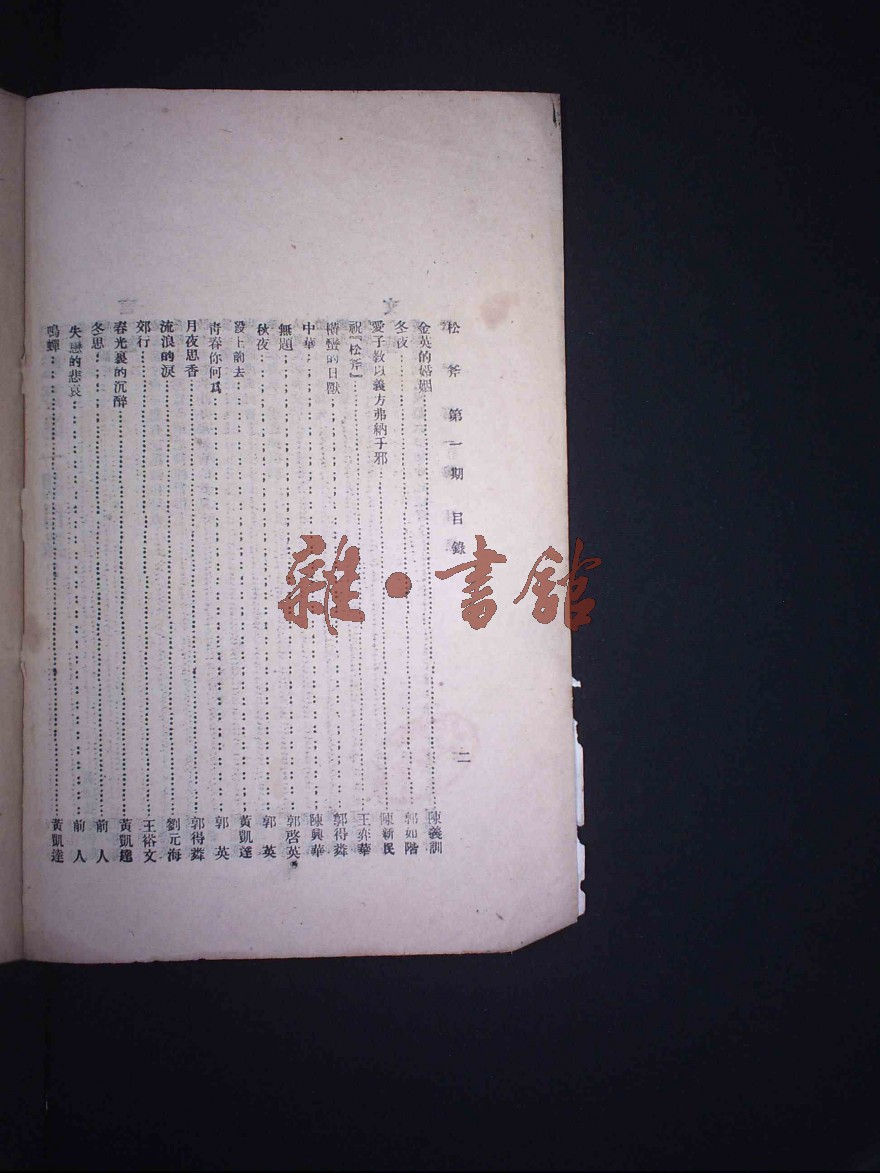 松斧第一期目錄 二
金英的婚姻 陳義訓
冬夜 郭如階
愛子教以義方弗納于邪 陳新民
祝『松斧』 王弈華
橫蠻的日獸 郭得粦
中華 陳興華
無題 郭啓英
秋夜 郭英
沒上前去 黃凱達
青春你何爲 郭英
月夜思香 郭得粦
流浪的淚 劉元海
郊行 王裕文
春光裏的沉醉 黃凱達
冬思 前人
失戀的悲哀 前人
鳴蟬 黃凱達
雜·書館